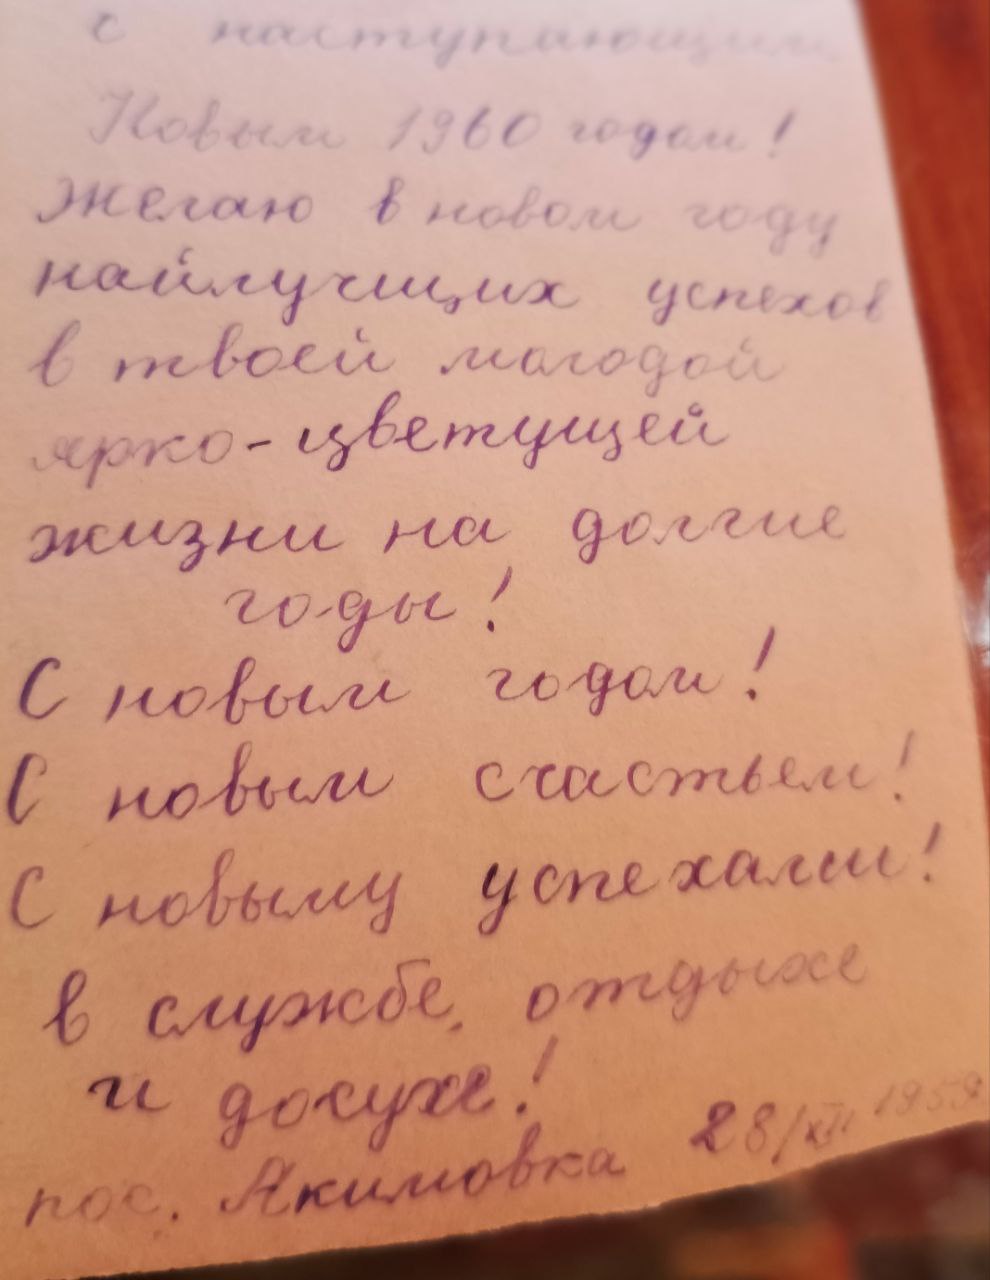 с наступающим
Новым 1960 годом!
Желаю в новом году
найлучших успехов
в твоей молодой
ярко-цветущей
жизни на долгие
годы!
С новым годом!
С новым счастьем!
С новыму успехами!
в службе, отдыхе
и досухе!
пос. Акимовка 28/XII 1959